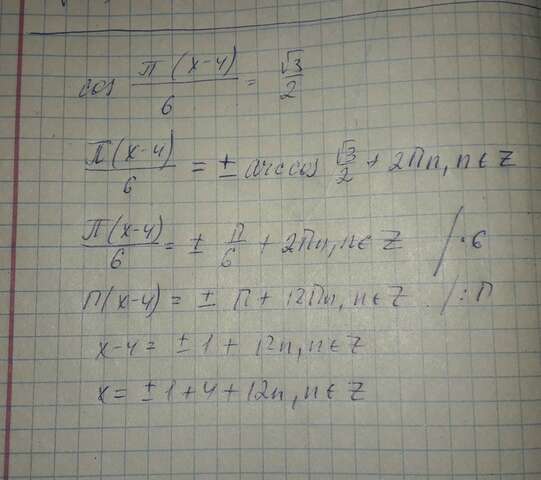 cos π(x-4)/6 = √3/2
π(x-4)/6 = ± arccos √3/2 + 2πn, n ∈ Z
π(x-4)/6 = ± π/6 + 2πn, n ∈ Z /·6
π(x-4) = ± π + 12πn, n ∈ Z. /:π
x-4 = ± 1 + 12n, n ∈ Z
x = ± 1 + 4 + 12n, n ∈ Z